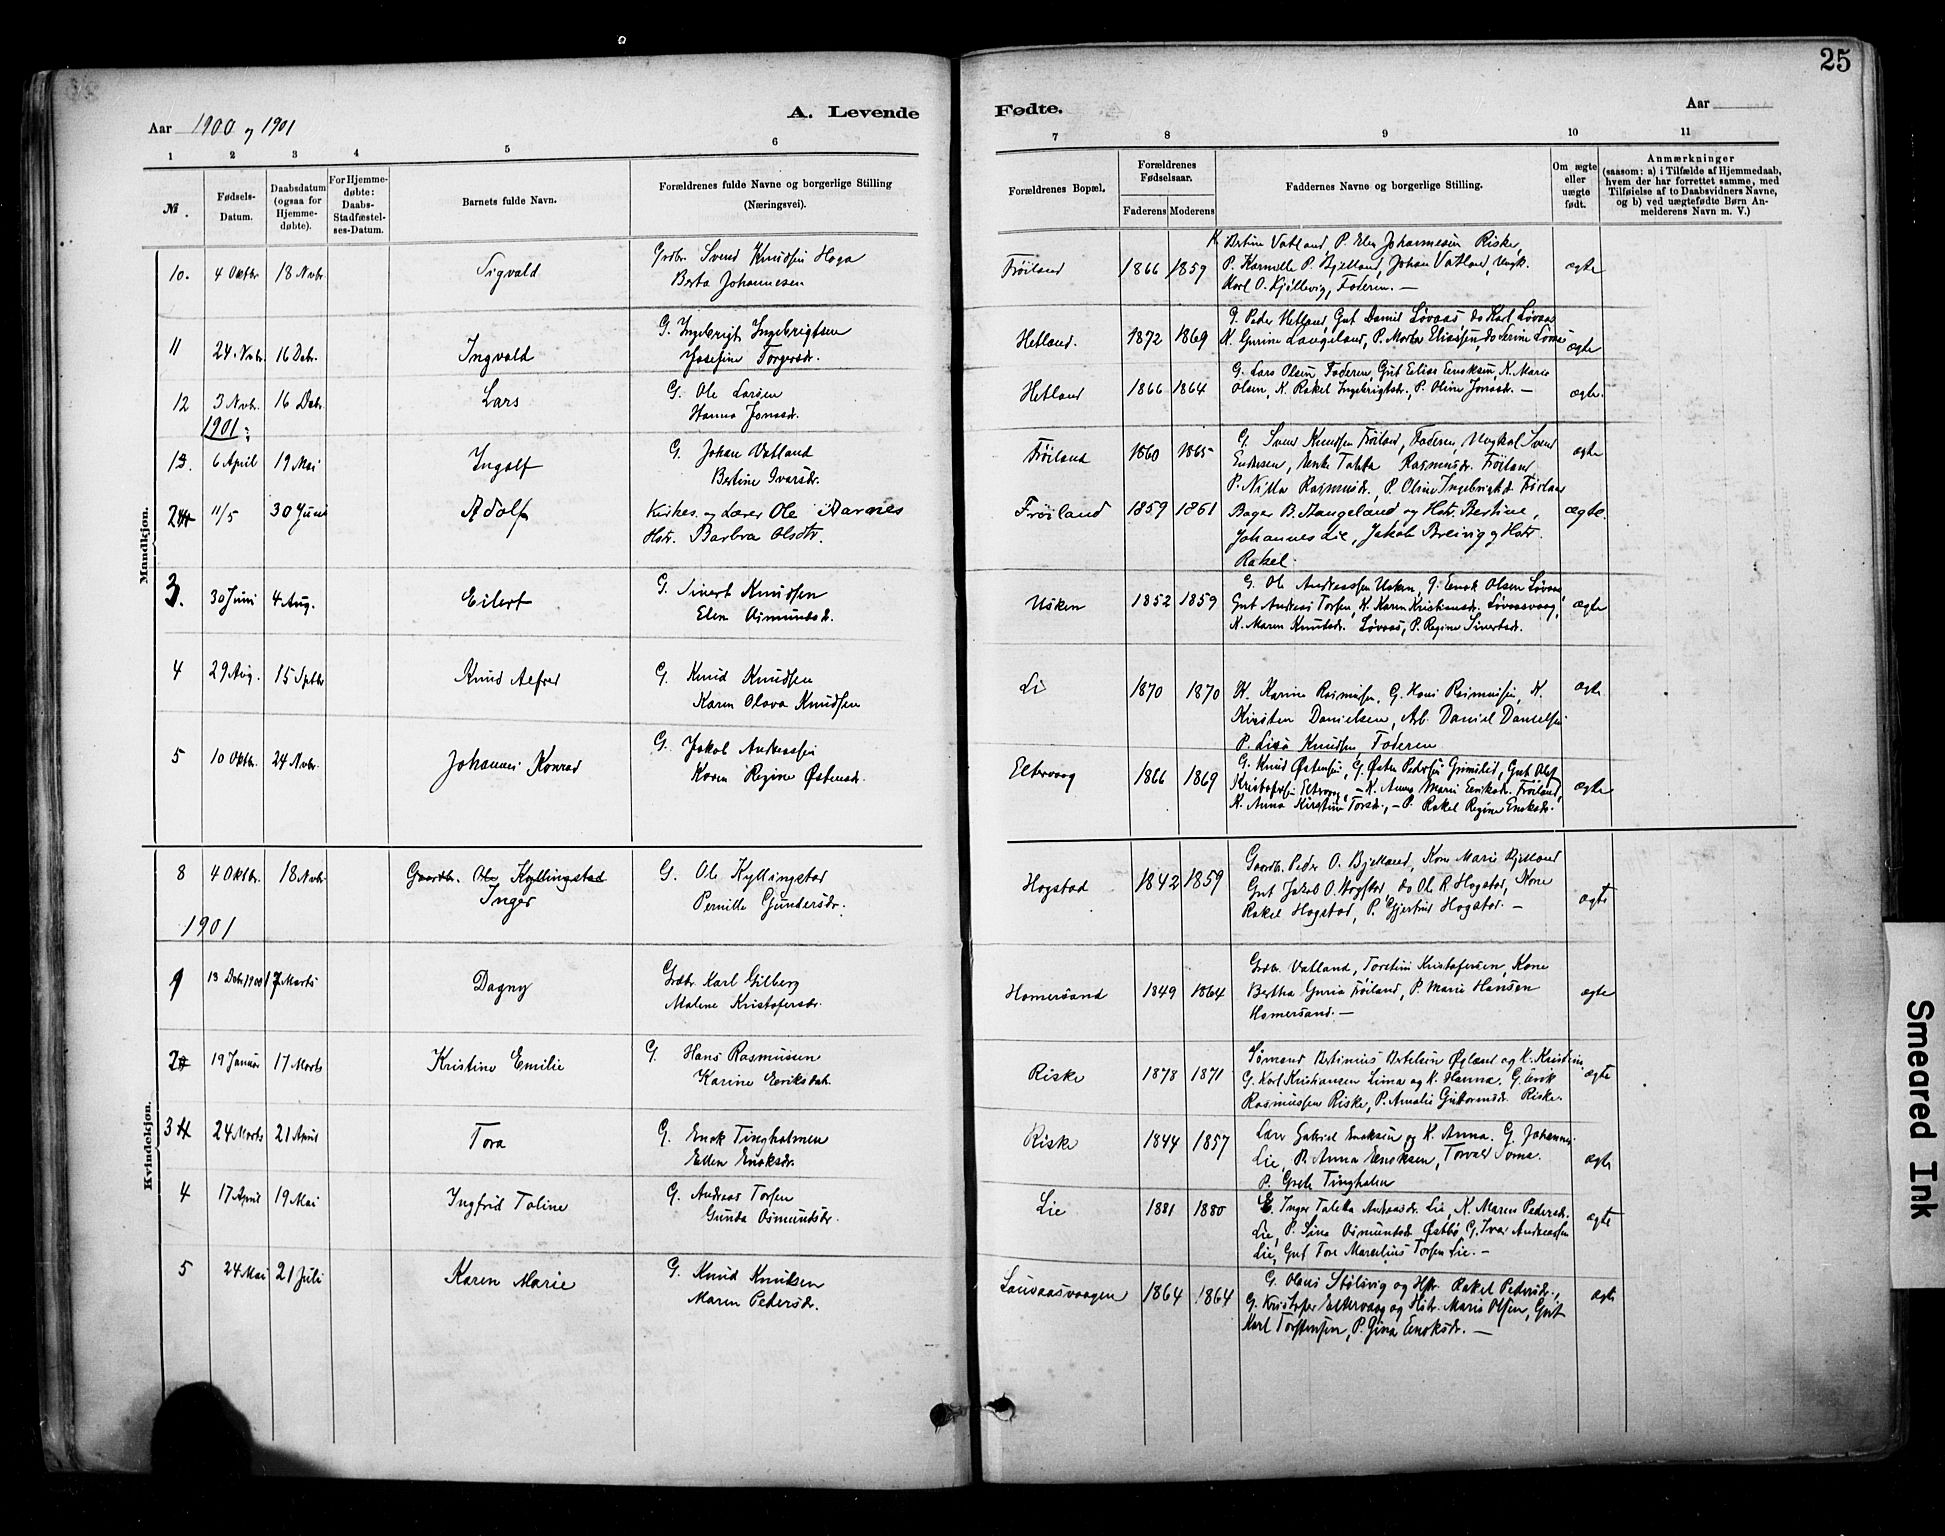 25
Aar 1900 og 1901
A. Levende Fødte.
Aar
1 2 3 4 5 6 7 8 9 10 11
№.
Fødsels-Datum.
Daabsdatum (ogsaa for Hjemme-døbte).
For Hjemme-døbte: Daabs-Stadfæstel-ses-Datum.
Barnets fulde Navn.
Forældrenes fulde Navne og borgerlige Stilling (Næringsvei).
Forældrenes Bopæl.
Forældrenes Fødselsaar.
Faderens Moderens
Faddernes Navne og borgerlige Stilling.
Om ægte eller uægte født.
Anmærkninger
(saasom: a) i Tilfælde af Hjemmedaab, hvem der har forrettet samme, med Tilføielse af to Daabsvidners Navne, og b) ved uægtefødte Børn An-melderens Navn m. V.)
Mandkjøn.
10. 4 Oktbr 18 Nvbr Sigvald Grdbr. Svend Knudsen Haga
Berta Johannesen
Frøiland 1866 1859
K Bertine Vatland P. Elen Johannesen Riske,
P. Karnelle P. Bjelland, Johan Vatland, Ungk.
Karl O. Kjøllevig, Faderen. —
ægte
11 24. Nvbr 16 Dcbr. Ingvald G. Ingebrigt Ingebrigtsen
Josefine Torgersdr.
Hetland. 1872 1869
G. Peder Hetland, Gut Daniel Løvaas do Karl Løvaas
K. Gurine Langeland, P. Marta Eliassen, do Serine
ægte
12 3 Nvbr. 16 Dcbr. Lars G. Ole Larsen
Hanna Jonasdr.
Hetland 1866 1864
G. Lars Olsen Faderen, Gut Elias Enoksen, K. Marie
Olsen, K. Rakel Ingebrigtsdr., P. Oline Jonasdr. —
ægte.
1901:
1. 6 April 19 Mai Ingolf G. Johan Vatland
Bertine Ivarsdr.
Frøiland 1860 1865
G. Svend Knudsen Frøiland, Faderen, Ungkal Svend
Endresen, Enke Talla Rasmusdr. Frøiland
P. Nilla Rasmusdr., P. Oline Ingebrigtsdr Frøiland
ægte
2 11/5 30 Juni Adolf Kirkes. og Lærer Ole Aarnes
Hstr. Barbra Olsdtr.
Frøiland 1859 1861
Bager B. Stangeland og Hstr. Bertine,
Johannes Lie, Jakob Breivig og Hstr.
Rakel.
ægte.
3. 30 Juni 4 Aug. Eilert G. Sivert Knudsen
Elen Osmundsdr.
Usken 1852 1859
G. Ole Andreassen Usken, G. Enok Olsen Løvaas,
Gut Andreas Torsen, K. Karen Kristiansdr. Løvaasvaag,
K. Maren Knutsdr. Løvaas, P. Regine Sivertsdr.
ægte
4 29 Aug. 15 Sptbr Knud Alfred G. Knud Knudsen
Karen Olava Knudsen
Li 1870 1870
K. Karine Rasmusen, G. Hans Rasmussen, K.
Kirsten Danielsen, Arb. Daniel Danielsen
P. Lisa Knudsen, Faderen
ægte
5 10 Oktbr. 24 Nvbr. Johannes Konrad G. Jakob Andreassen
Karen Regine Østensdr.
Eltervaag 1866 1869
G. Knud Østensen, G. Østen Pedersen Grimslid, Gut Olaf
Kristofersen Eltervaag, – K. Anna Marie Eeriksdr. Frøiland,
K. Anna Kirstine Torsdr, – P. Rakel Regine Enoksdr.
ægte
Kvindekjøn.
8 4 Oktbr. 18 Nvbr Gaardbr. Ole Kyllingstad
Inger
G. Ole Kyllingstad
Pernille Gundersdr.
Hogstad 1842 1859
Gaardb. Peder O. Bjelland, Kone Marie Bjelland
Gut Jakob O. Hogstad, do Ole R. Hogstad, Kone
Rakel Hogstad, P. Gjertrud Hogstad. —
ægte
1901
1 13 Dcbr 1900 17 Marts Dagny Grdbr. Karl Gilberg
Malene Kristofersdr.
Homersand 1849 1864
Grdbr. Vatland, Torstein Kristofersen, Kone
Bertha Guria Frøiland, P. Marie Hansen
Homersand. —
ægte
2 19 Januar 17 Marts Kristine Emilie G. Hans Rasmussen
Karine Eeriksdatr.
Riske 1878 1871
Sømand Bertinius Bertelsen Øgland og K. Kristine
G. Karl Kristiansen Lima og K. Hanna. G. Eerik
Rasmussen Riske, P. Amalie Guttormsdr. Riske.
ægte
3 24 Marts 21 April Tora G. Enok Tingholmen
Ellen Enoksdr.
Riske 1844 1857
Lars Gabriel Enoksen og K. Anna. G. Johannes
Lie, P. Anna Enoksen, Torvald Soma.
P. Grete Tingholm
ægte
4 17 April 19 Mai Ingfrid Toline G. Andreas Torsen
Gunda Osmundsdr.
Lie 1881 1880
E. Inger Talette Andreasdr. Lie, K. Maren Pedersdr.
Lie, P. Sina Osmundsdr Østbø, G. Ivar Andreassen
Lie, Gut Tore Marselius Torsen Lie. —
ægte
5 24 Mai 21 Juli Karen Marie G. Knud Knutsen
Maren Pedersdr.
Lauvaasvaagen 1864 1864
G. Olaus Stølsvig og Hstr. Rakel Pedersdr.,
G. Kristofer Eltervaag og Hstr. Marie Olsen, Gut
Karl Torstensen, P. Gina Enoksdr. —
ægte
Smeared Ink